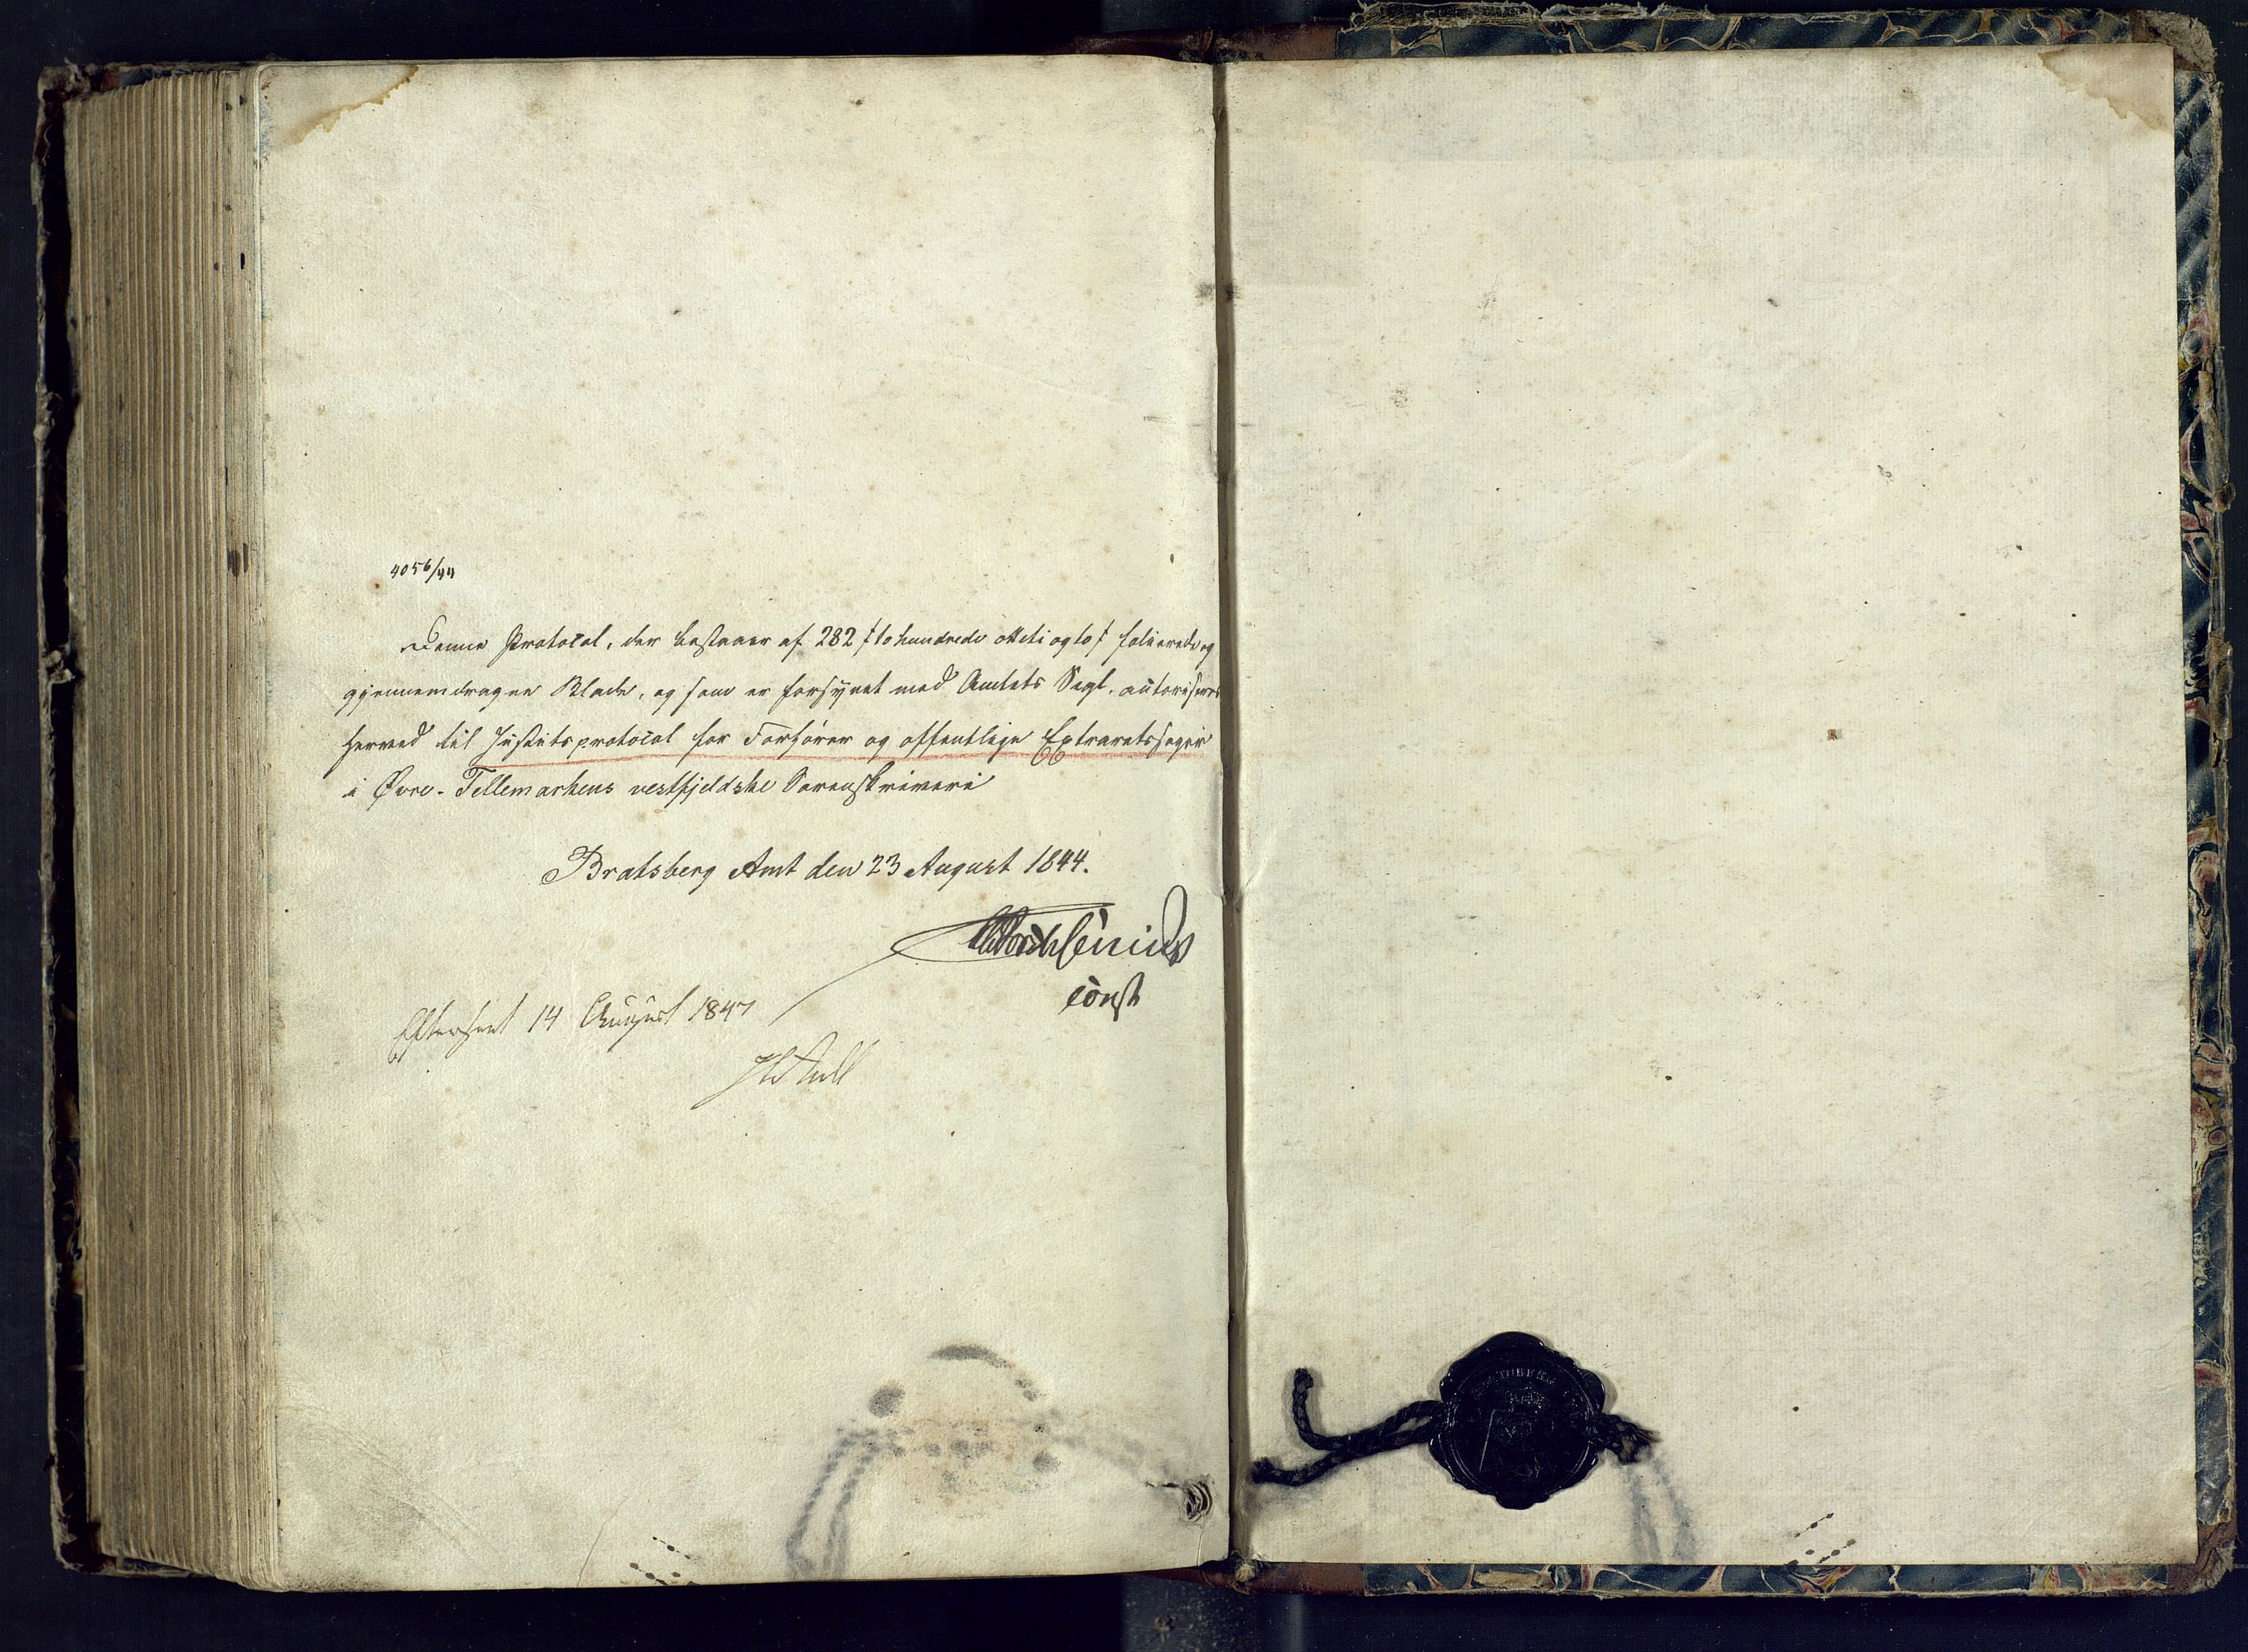 4056/44
Denne Protocol, der bestaaer af 282 /: to hundrede otteti og to :/ folierede og
gjennemdragne Blade, og som er forsynet med Amtets Segl, autoriseres
herved til Justitsprotocol for Forhører og offentlige Extraretssager
i Øvre-Tellemarkens vestfjeldske Sorenskriveri
Bratsberg Amt den 23 August 1844.
const
Efterseet 14 August 1847
H Aall